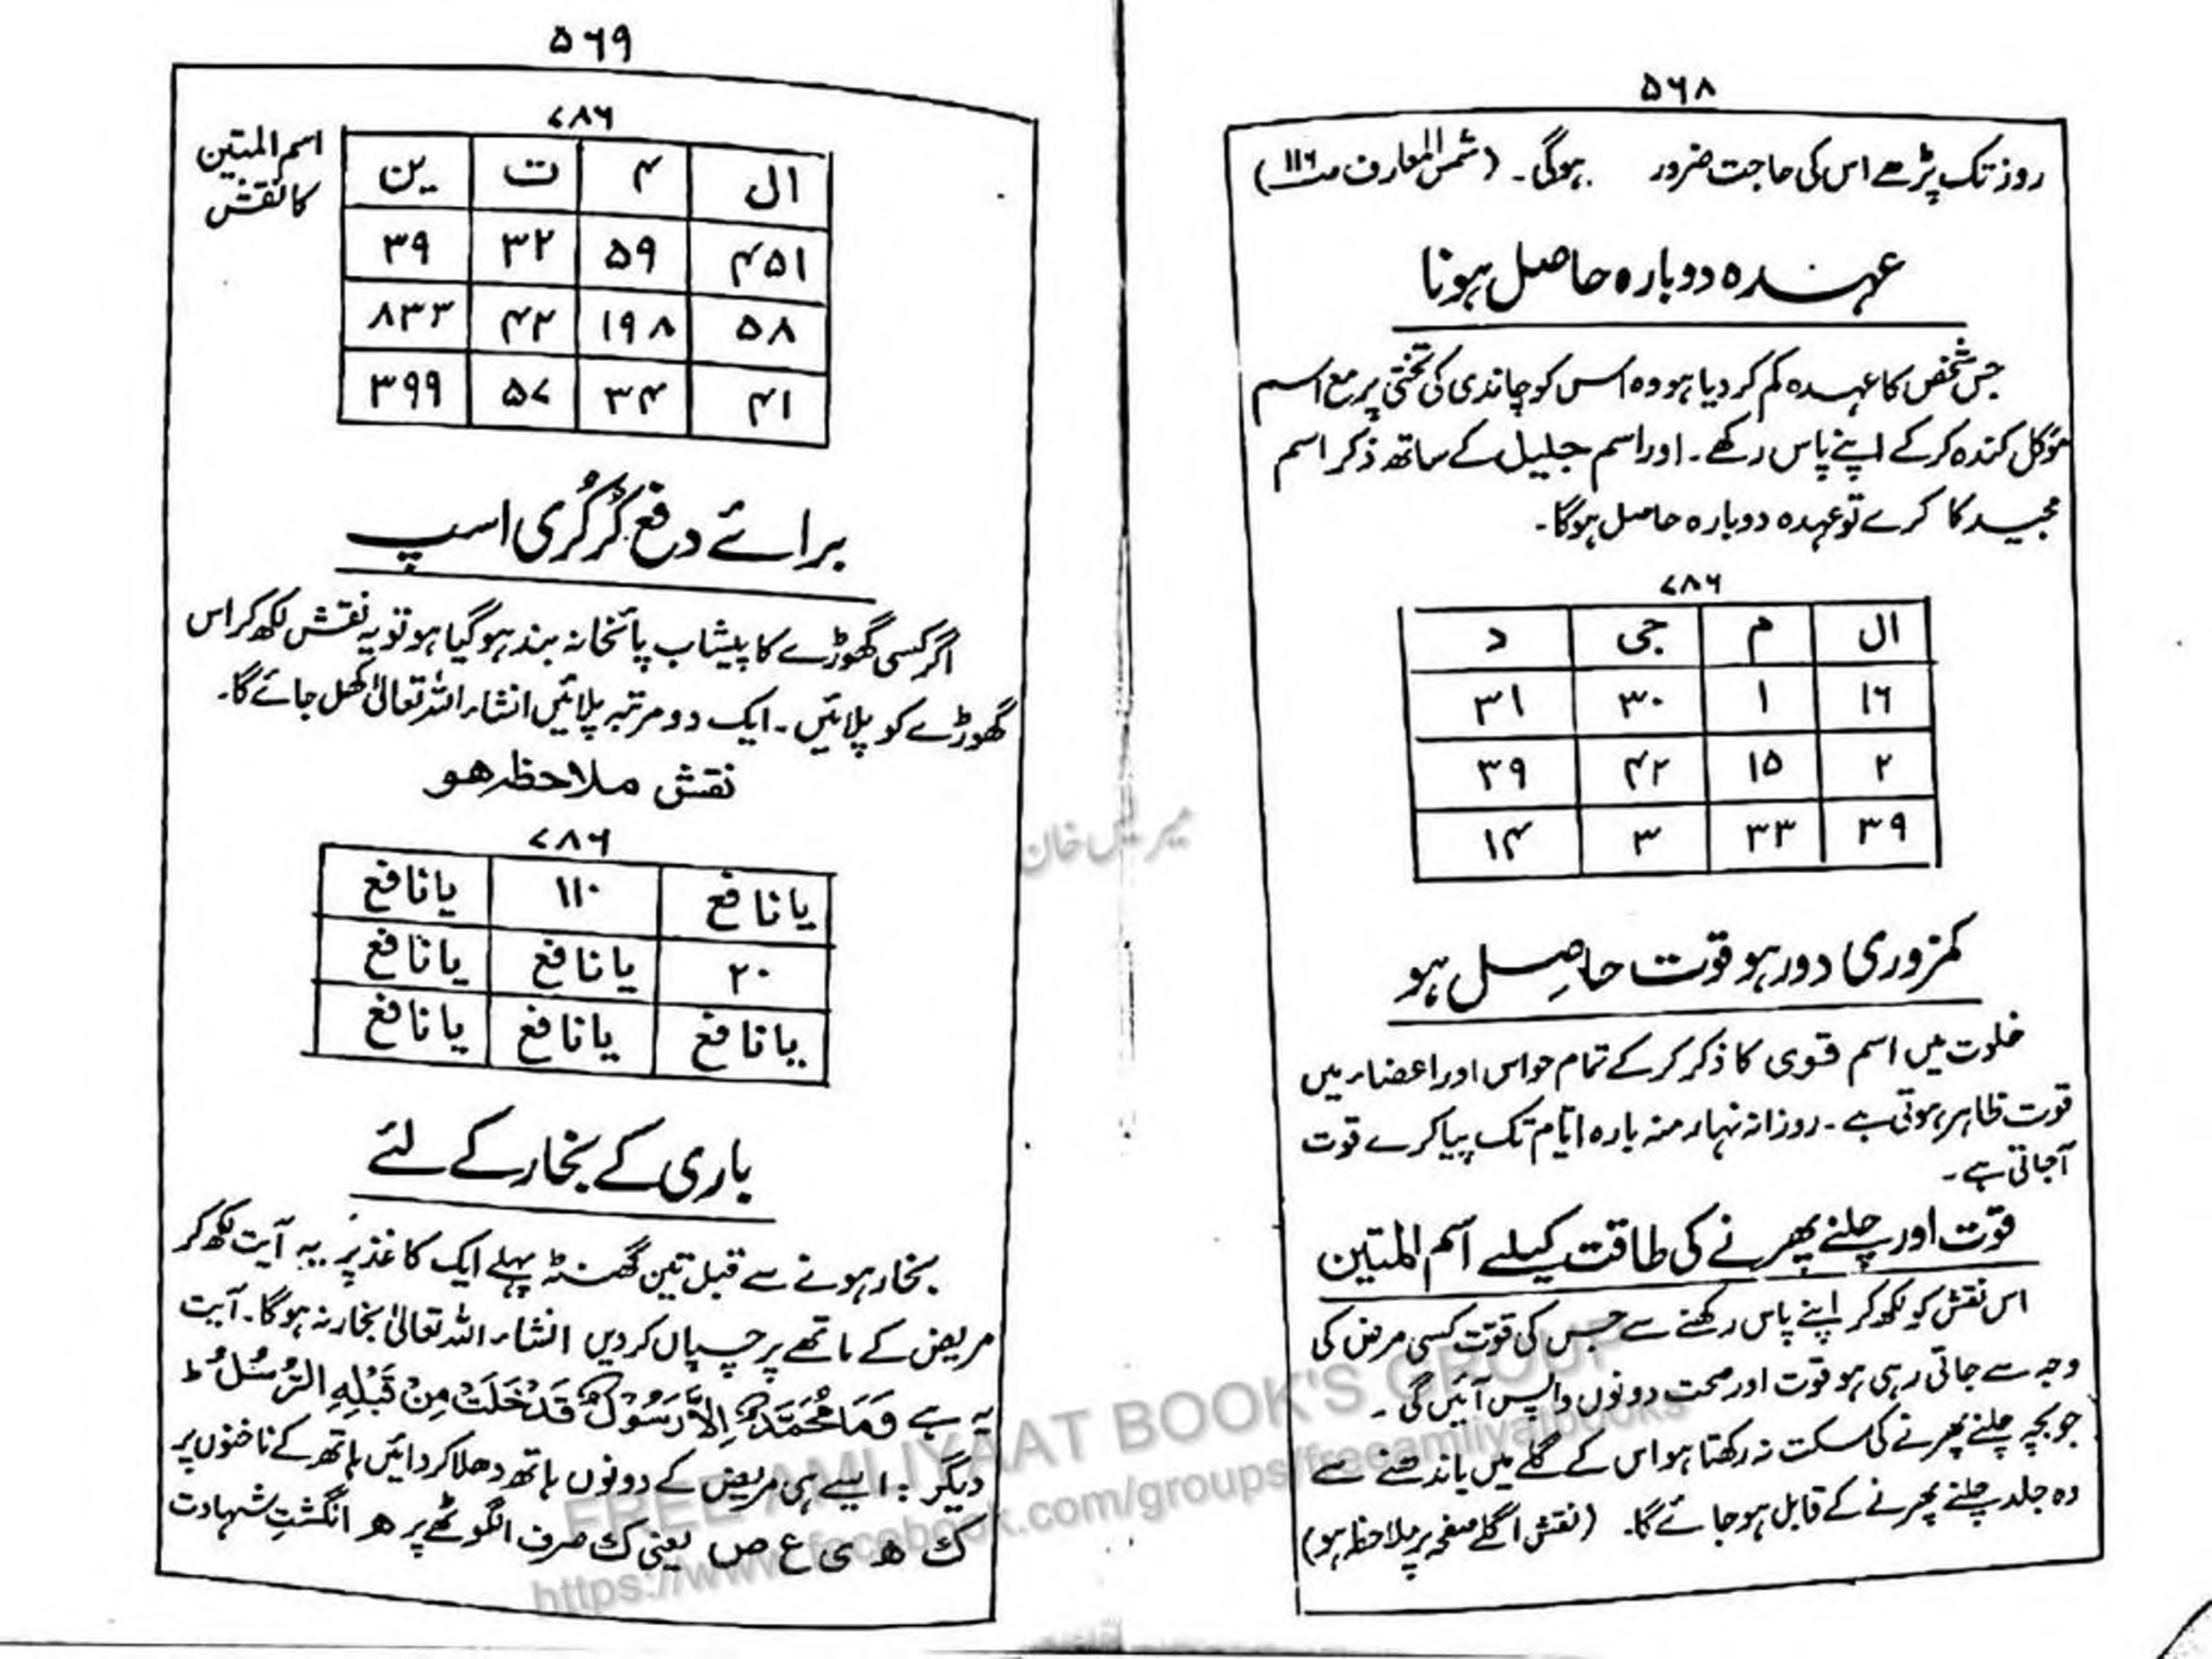 ۵۶۸
روز تک پڑھے اس کی حاجت ضرور ہوگی۔ (شمس المعارف ص ۱۱۶)
عہدہ دوبارہ حاصل ہونا
جس شخص کا عہدہ کم کر دیا ہو وہ اس کو چاندی کی تختی پر مع اسم
مؤکل کندہ کرکے اپنے پاس رکھے۔ اور اسم جلیل کے ساتھ ذکر اسم
مجید کا کرے تو عہدہ دوبارہ حاصل ہوگا۔
۷۸۶
ال م جی د
۱۶ ۱ ۳۰ ۳۱
۲ ۱۵ ۴۲ ۳۹
۳۹ ۳۳ ۳ ۱۴
کمزوری دور ہو قوت حاصِل ہو
خلوت میں اسم قوی کا ذکر کرکے تمام حواس اور اعضاء میں
قوت ظاہر ہوتی ہے۔ روزانہ نہار منہ بارہ ایّام تک پیا کرے قوت
آجاتی ہے۔
قوّت اور چلنے پھرنے کی طاقت کیلئے اسم المتین
اس نقش کو لکھ کر اپنے پاس رکھنے سے جس کی قوّت کسی مرض کی
وجہ سے جاتی رہی ہو قوت اور صحت دونوں واپس آئیں گی۔
جو بچہ چلنے پھرنے کی سکت نہ رکھتا ہو اس کے گلے میں باندھنے سے
وہ جلد چلنے پھرنے کے قابل ہو جائے گا۔ (نقش اگلے صفحہ پر ملاحظہ ہو)
۵۶۹
اسم المتین
کا نقش
۷۸۶
ال م ت ین
۴۵۱ ۵۹ ۳۲ ۳۹
۵۸ ۱۹۸ ۴۲ ۸۳۳
۴۱ ۳۴ ۵۷ ۳۹۹
برائے دفع کُرکُری اسپ
اگر کسی گھوڑے کا پیشاب پائخانہ بند ہو گیا ہو تو یہ نقش لکھ کر اس
گھوڑے کو پلائیں۔ ایک دو مرتبہ پلائیں انشاء اللہ تعالیٰ کھل جائے گا۔
نقش ملاحظہ ہو
۷۸۶
یا نافع ۱۱۰ یا نافع
۲۰ یا نافع یا نافع
یا نافع یا نافع یا نافع
باری کے بخار کے لئے
بخار ہونے سے قبل تین گھنٹہ پہلے ایک کاغذ پر یہ آیت لکھ کر
مریض کے ماتھے پر چسپاں کر دیں انشاء اللہ تعالیٰ بخار نہ ہوگا۔ آیت
یہ ہے وَمَا مُحَمَّدٌ اِلَّا رَسُوْلٌ قَدْ خَلَتْ مِنْ قَبْلِهِ الرُّسُلُ ط
دیگر : ایسے ہی مریض کے دونوں ہاتھ دھلا کر دائیں ہاتھ کے ناخنوں پر
ك ھ ی ع ص یعنی ك صرف انگوٹھے پر ھ انگشتِ شہادت
میر قیس خان
FREE AMLIYAAT BOOK'S GROUP
https://www.facebook.com/groups/freeamliyatbooks